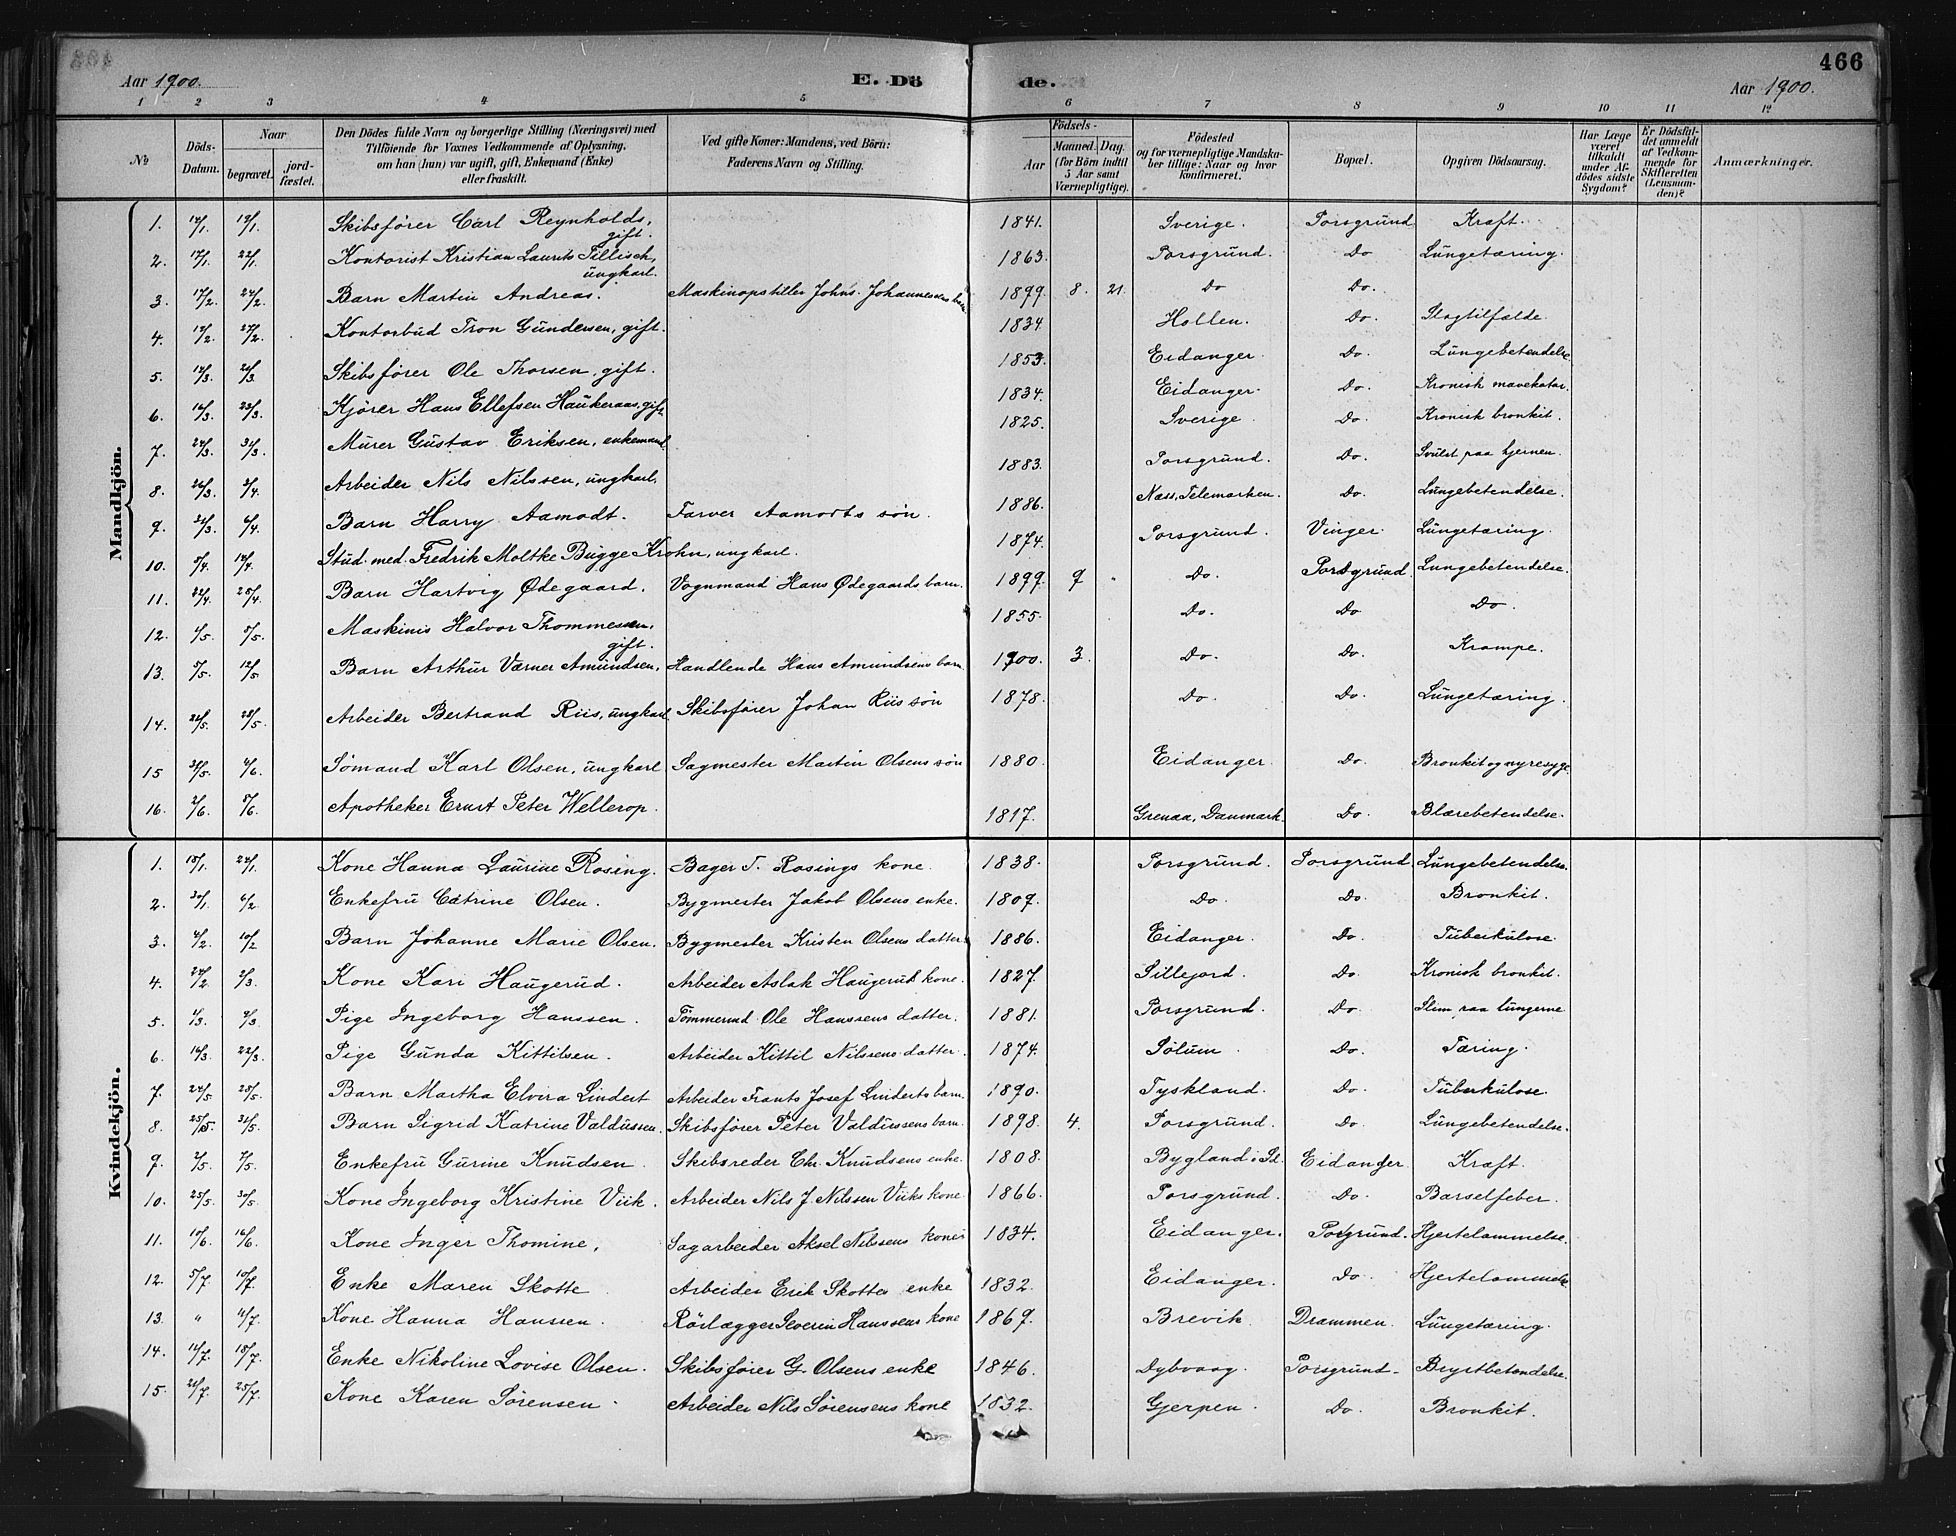 466
Aar 1900. E. Dö de. Aar 1900.
1 2 3 4 5 6 7 8 9 10 11 12
No
Döds-Datum.
Naar begravet. jordfæstet.
Den Dödes fulde Navn og borgerlige Stilling (Næringsvei) med Tilföiende for Voxnes Vedkommende af Oplysning, om han (hun) var ugift, gift, Enkemand (Enke) eller fraskilt.
Ved gifte Koner: Mandens, ved Börn: Faderens Navn og Stilling.
Födsels-
Aar Maaned. Dag. (for Börn indtil 5 Aar samt Værnepligtige).
Födested og for værnepligtige Mandskaber tillige: Naar og hvor konfirmeret.
Bopæl.
Opgiven Dödsaarsag.
Har Læge været tilkaldt under Afdödes sidste Sygdom?
Er Dödsfaldet anmeldt af Vedkommende for Skifteretten (Lensmanden)?
Anmærkninger.
Mandkjön.
1. 12/1. 19/1. Skibsfører Carl Reynholds, gift. 1841. Sverige. Porsgrund Kraft.
2. 17/1. 22/1. Kontorist Kristian Laurits Tillisch, ungkarl. 1863. Porsgrund. Do Lungetæring.
3. 17/2. 24/2. Barn Martin Andreas. Maskinopstiller Johs. Johannessens barn 1899. 8. 21. Do Do.
4. 19/2. 27/2. Kontorbud Tron Gundersen, gift. 1834. Hollen. Do. Slagtilfælde.
5. 19/3. 26/3. Skibsfører Ole Thorsen, gift. 1853. Eidanger. Do. Lungebetendelse.
6. 16/3. 23/3. Kjører Hans Ellefsen Haukeraas, gift. 1834. Eidanger. Do. Kronisk mavekatar.
7. 24/3. 31/3. Murer Gustav Eriksen, enkemand 1825. Sverige. Do. Kronisk bronkit.
8. 26/3. 2/4. Arbeider Nils Nilssen, ungkarl, 1883. Porsgrund. Do. Svulst paa hjernen.
9. 31/3. 6/4. Barn Harry Aamodt. Farver Aamodts søn. 1886. Næss, Telemarken. Do. Lungebetendelse.
10. 5/4. 14/4. Stud. med. Fredrik Moltke Bugge Krohn, ungkarl. 1874. Porsgrund. Vinger. Lungetæring.
11. 22/4. 25/4. Barn Hartvig Ødegaard. Vognmand Hans Ødegaards barn. 1899. 9 " Do. Porsgrund. Lungebetendelse.
12. 1/5. 5/5. Maskinis Halvor Thommesen, gift. 1855. Do. Do Do.
13. 5/5. 12/5. Barn Arthur Værner Amundsen, Handlende Hans Amundsens barn. 1900. 3. Do. Do. Krampe.
14. 22/5. 28/5. Arbeider Bertrand Riis, ungkarl Skibsfører Johan Riis søn 1878. Do. Do. Lungetæring.
15 31/5. 6/6. Sømand Karl Olsen, ungkarl Sagmester Martin Olsens søn 1880. Eidanger. Do. Bronkit og nyresyge.
16. 2/6. 5/6. Apotheker Ernst Peter Wellerop. 1817. Grenaa, Danmark. Do. Blærebetendelse.
Kvindekjön.
1. 18/1. 24/1. Kone Hanna Laurine Rosing. Bager T. Rosings kone. 1838. Porsgrund. Porsgrund Lungebetendelse.
2. 30/1. 6/2. Enkefru Catrine Olsen. Bygmester Jakob Olsens enke. 1809. Do. Do. Bronkit.
3. 4/2. 10/2 Barn Johanne Marie Olsen. Bygmester Kristen Olsens datter. 1886. Eidanger. Do. Tuberkulose.
4. 24/2. 2/3. Kone Kari Haugerud. Arbeider Aslak Haugerud kone. 1827. Sillejord. Do. Kronisk bronkit.
5. 1/3. 9/3. Pige Ingeborg Hanssen. Tømmermd. Ole Hanssens datter. 1881. Porsgrund. Do. Slim paa lungerne
6. 16/3. 22/3. Pige Gunda Kittilsen. Arbeider Kittil Nilssens datter. 1874. Solum. Do. Tæring.
7. 24/5. 28/5. Barn Martha Elvira Lindert Arbeider Frants Josef Linderts barn. 1890. Tyskland. Do. Tuberkulose.
8. 25/5. 31/5. Barn Sigrid Katrine Valdussen. Skibsfører Peter Valdussens barn. 1898. 4. Porsgrund. Do. Lungebetendelse.
9. 2/5. 7/5. Enkefru Gurine Knudsen. Skibsreder Chr. Knudsens enke. 1808. Bygland i Sd. Eidanger. Kraft.
10. 25/5. 30/5. Kone Ingeborg Kristine Viik. Arbeider Nils J. Nilssen Viiks kone 1866. Porsgrund. Do. Barselfeber.
11. 10/6. 16/6. Kone Inger Thomine. Sagarbeider Aksel Nilssens kone. 1834. Eidanger. Porsgrund. Hjertelammelse.
12. 5/7. 10/7. Enke Maren Skotte Arbeider Erik Skottes enke 1832. Eidanger. Do. Hjertelammelse
13. " 11/7. Kone Hanna Hanssen. Rörlægger Severin Hanssens kone 1869. Brevik. Drammen. Lungetæring.
14. 14/7. 18/7. Enke Nikoline Lovise Olsen. Skibsfører G. Olsens enke 1846. Dybvaag. Porsgrund. Brystbetendelse.
15. 21/7. 25/7. Kone Karen Sørensen. Arbeider Nils Sørensens kone 1832. Gjerpen. Do. Bronkit.